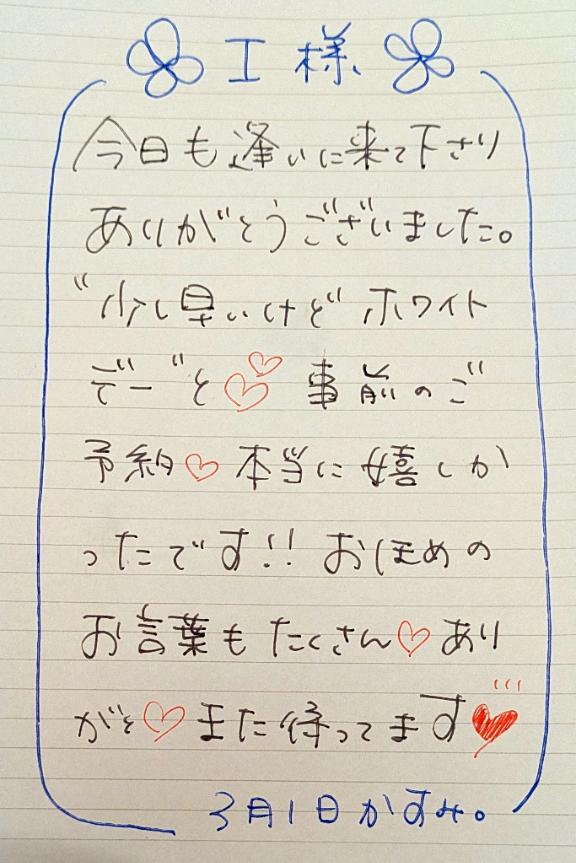 I様
今日も逢いに来て下さり
ありがとうございました。
“少し早いけど”ホワイト
デー”と♡♡事前のご
予約♡本当に嬉しか
ったです!!おほめの
お言葉もたくさん♡あり
がと♡また待ってます♥
3月1日かすみ。